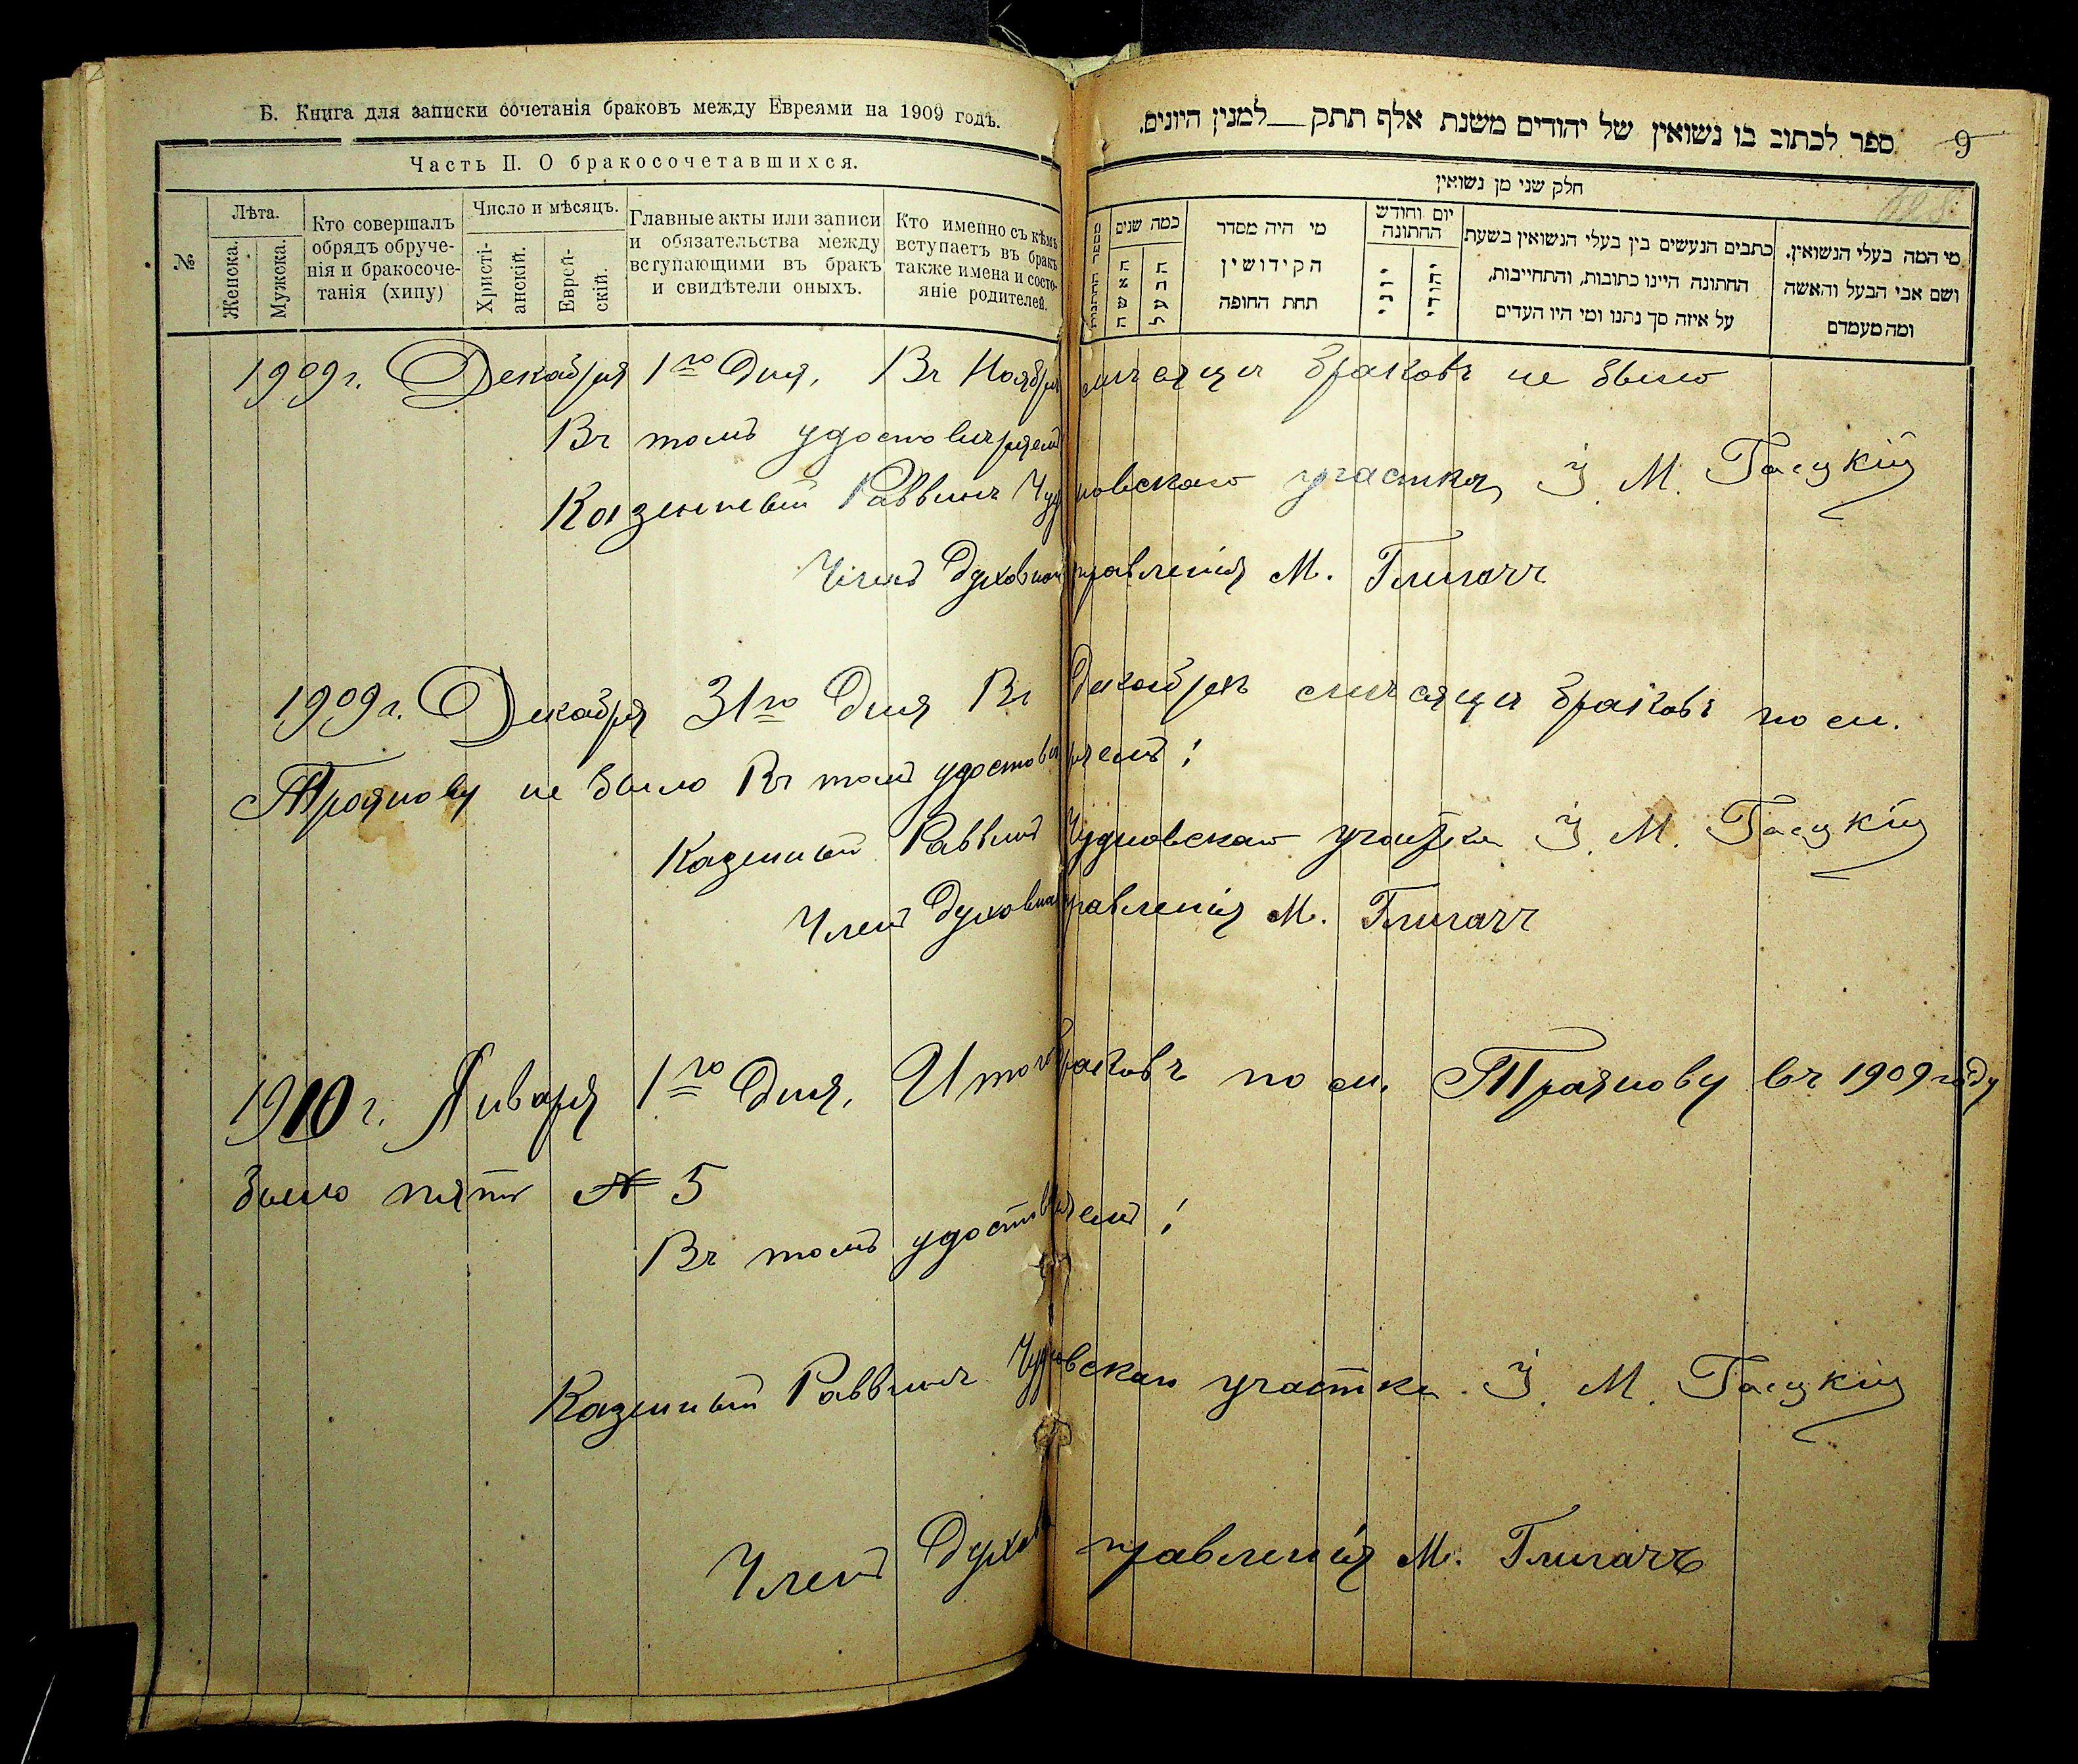 Б. Книга для записки сочетанія браковъ между Евреями на 1909 годъ.
Часть II. О бракосочетавшихся.
№
Лѣта.
Женска.
Мужска.
Кто совершалъ
обрядъ обруче-
нія и бракосоче-
танія (хипу)
Число и мѣсяцъ.
Христі-
анскій.
Еврей-
скій.
Главные акты или записи
и обязательства между
вступающими въ бракъ
и свидѣтели оныхъ.
Кто именно съ кѣмъ
вступаетъ въ бракъ
также имена и состо-
яніе родителей.
ספר לכתוב בו נשואין של יהודים משנת אלף תתק__למנין היונים.
9
חלק שני מן נשואין
מי המה בעלי הנשואין.
ושם אבי הבעל והאשה
ומה מעמדם
כתבים הנעשים בין בעלי הנשואין בשעת
החתונה היינו כתובות, והתחייבות,
על איזה סך נתנו ומי היו העדים
יום וחודש
החתונה
יהודי
יוני
מי היה מסדר
הקידושין
תחת החופה
כמה שנים
הבעל
האשה
מספר החתונות
1909 г. Декабря 1го дня, Въ Ноябрѣ мѣсяцѣ браковъ не было
Въ томъ удостовѣряемъ
Казенный Раввинъ Чудновскаго участка І. М. Гасцкій
Членъ Духовнаго правленія М. Глигачъ
1909 г. Декабря 31го дня Въ Декабрѣ мѣсяцѣ браковъ по м.
Троянову не было Въ томъ удостовѣряемъ:
Казенный Раввинъ Чудновскаго участка І. М. Гасцкій
Членъ Духовнаго правленія М. Глигачъ
1910 г. Января 1го дня, Итого браковъ по м. Троянову въ 1909 году
было пять № 5
Въ томъ удостовѣряемъ:
Казенный Раввинъ Чудновскаго участка І. М. Гасцкій
Членъ Духов правленія М. Глигачъ